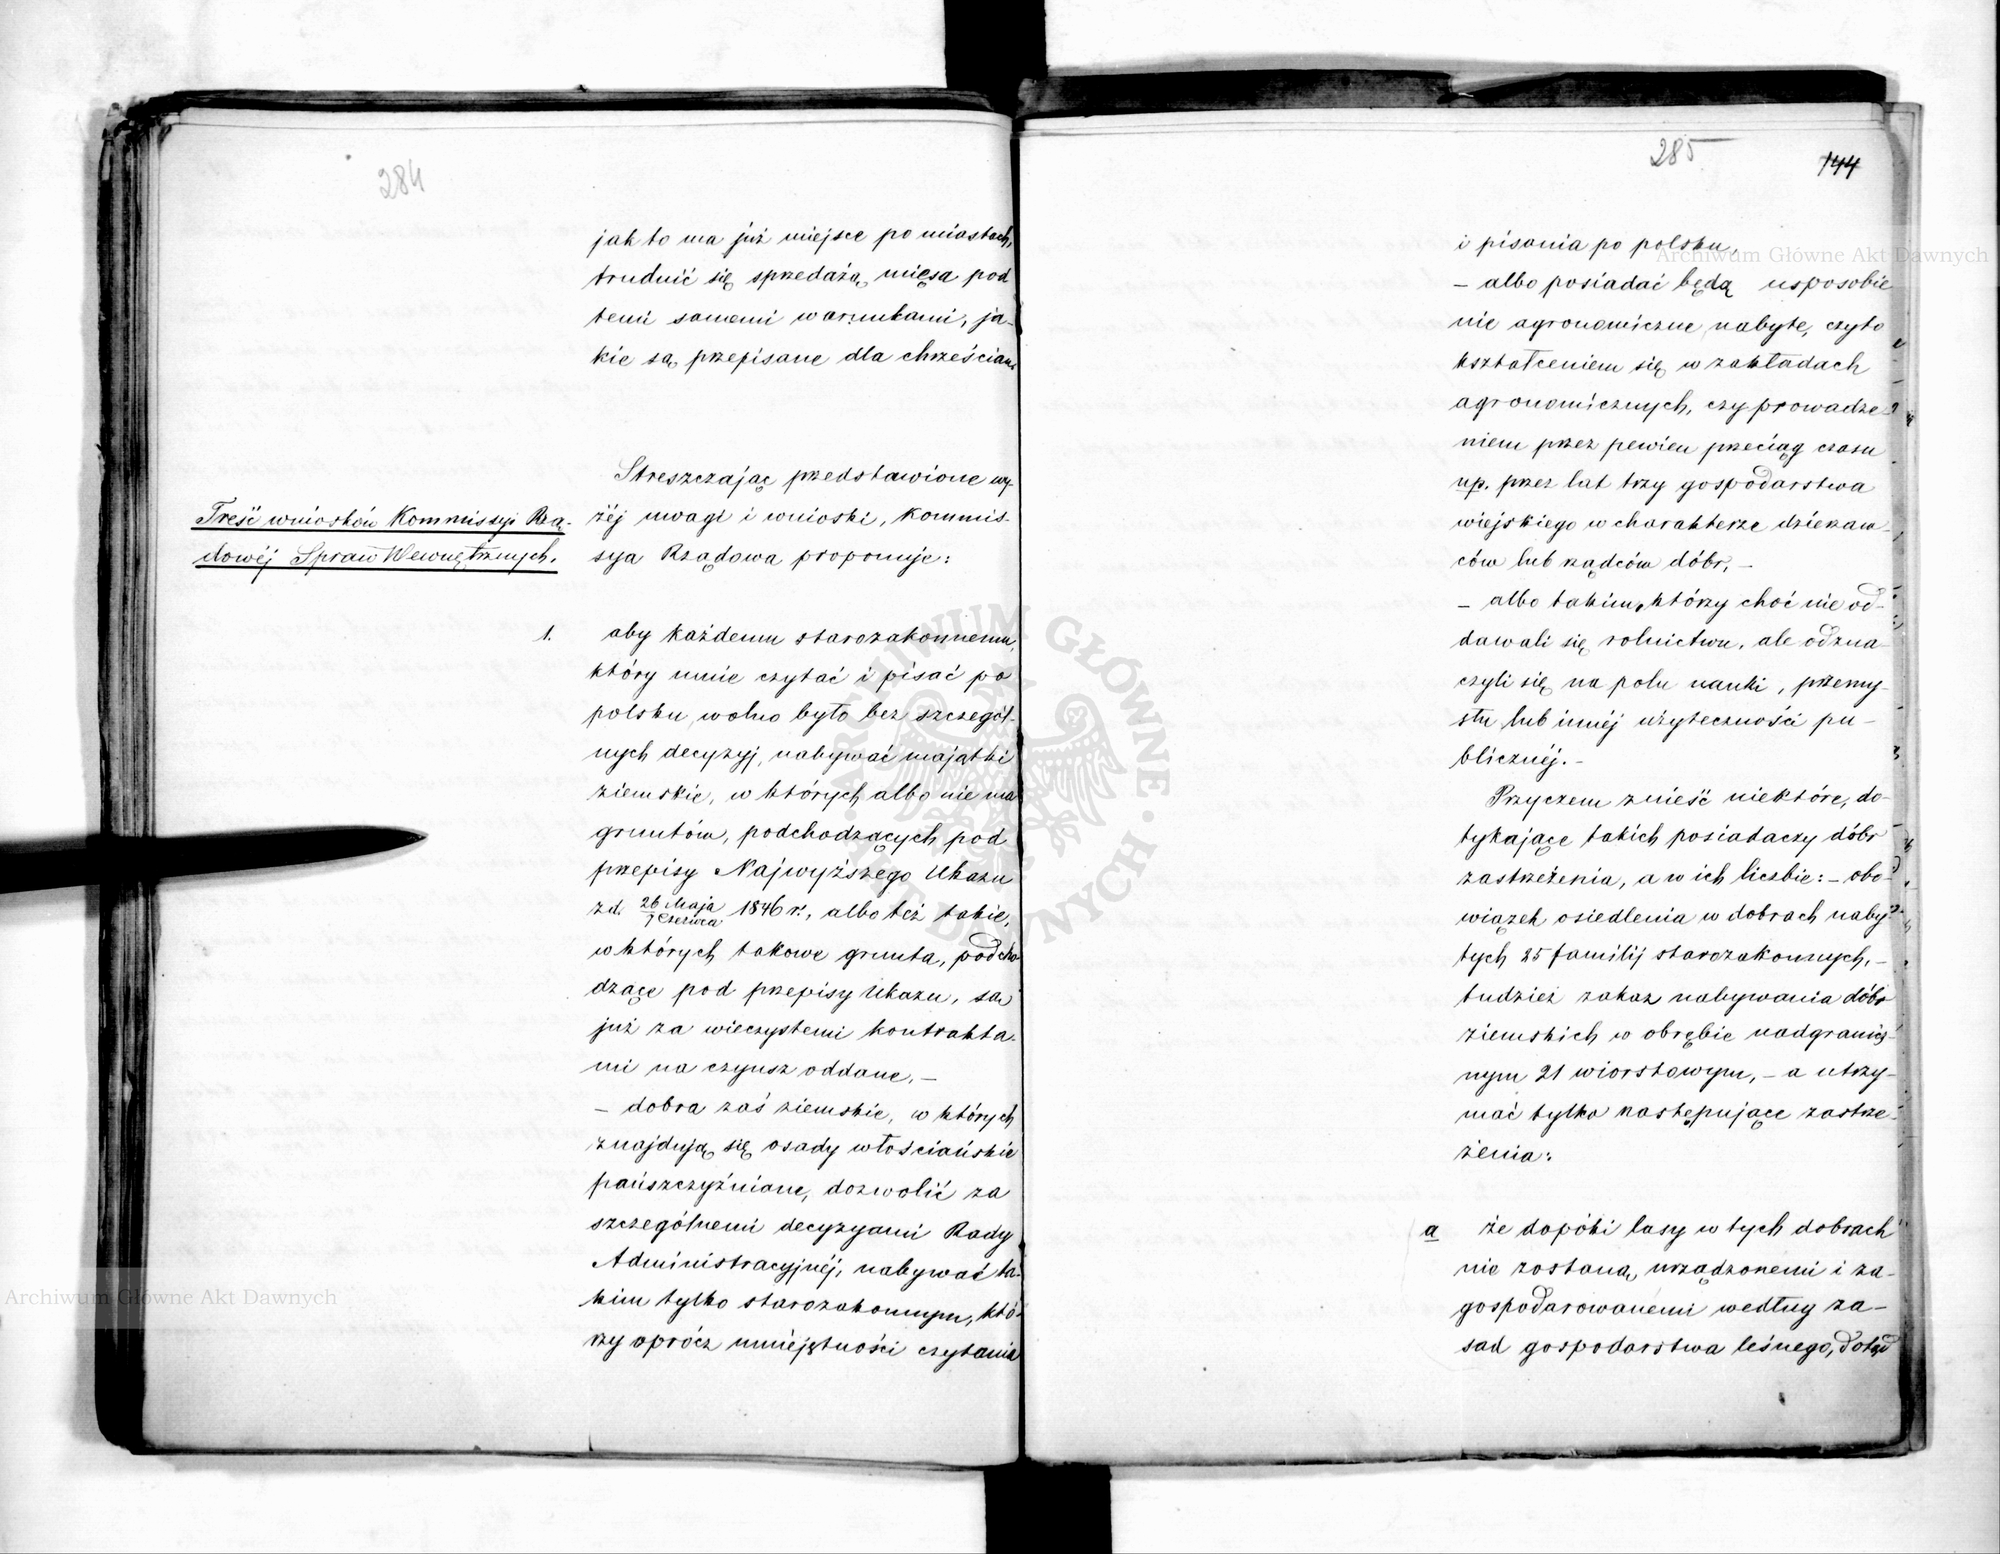 284
jak to ma już miejsce po miastach,
trudnić się sprzedażą mięsa pod
temi samemi warunkami, ja-
kie są przepisane dla chrześcian.
Streszczając przedstawione wy-
żéj uwagi i wnioski, Kommis-
sya Rządowa proponuje:
Treść wniosków Kommissyi Rzą-
dowéj Spraw Wewnętrznych.
1. aby każdemu starozakonnemu,
który umie czytać i pisać po
polsku, wolno było bez szczegól-
nych decyzyj, nabywać majątki
ziemskie, w których albo nie ma
gruntów, podchodzących pod
przepisy Najwyższego Ukazu
z d. 26 Maja / 7 Czerwca 1846 r., albo też takie,
w których takowe grunta, podcho
dzące pod przepisy Ukazu, są
już za wieczystemi kontrakta-
mi na czynsz oddane, –
– dobra zaś ziemskie, w których
znajdują się osady włościańskie
pańszczyźniane, dozwolić za
szczególnemi decyzyami Rady
Administracyjnéj, nabywać ta-
kim tylko starozakonnym, któ-
rzy oprócz umiejętności czytania
285
144
i pisania po polsku,
– albo posiadać będą usposobie
nie agronomiczne nabyte, czyto
kształceniem się w zakładach
agronomicznych, czy prowadze-
niem przez pewien przeciąg czasu
np. przez lat trzy gospodarstwa
wiejskiego w charakterze dzierżaw-
ców lub rządców dóbr, –
– albo takim, którzy choć nie od-
dawali się rolnictwu, ale odzna-
czyli się na polu nauki, przemy-
słu lub innéj użyteczności pu-
blicznéj. –
Przyczem znieść niektóre, do-
tykające takich posiadaczy dóbr
zastrzeżenia, a w ich liczbie: – obo-
wiązek osiedlenia w dobrach naby-
tych 25 familij starozakonnych, –
tudzież zakaz nabywania dóbr
ziemskich w obrębie nadgranicz-
nym 21 wiorstowym, – a utrzy-
mać tylko następujące zastrze-
żenia:
a że dopóki lasy w tych dobrach
nie zostaną urządzonemi i za-
gospodarowanemi według za-
sad gospodarstwa leśnego, dotąd
Archiwum Główne Akt Dawnych
Archiwum Główne Akt Dawnych
ARCHIWUM GŁÓWNE AKT DAWNYCH